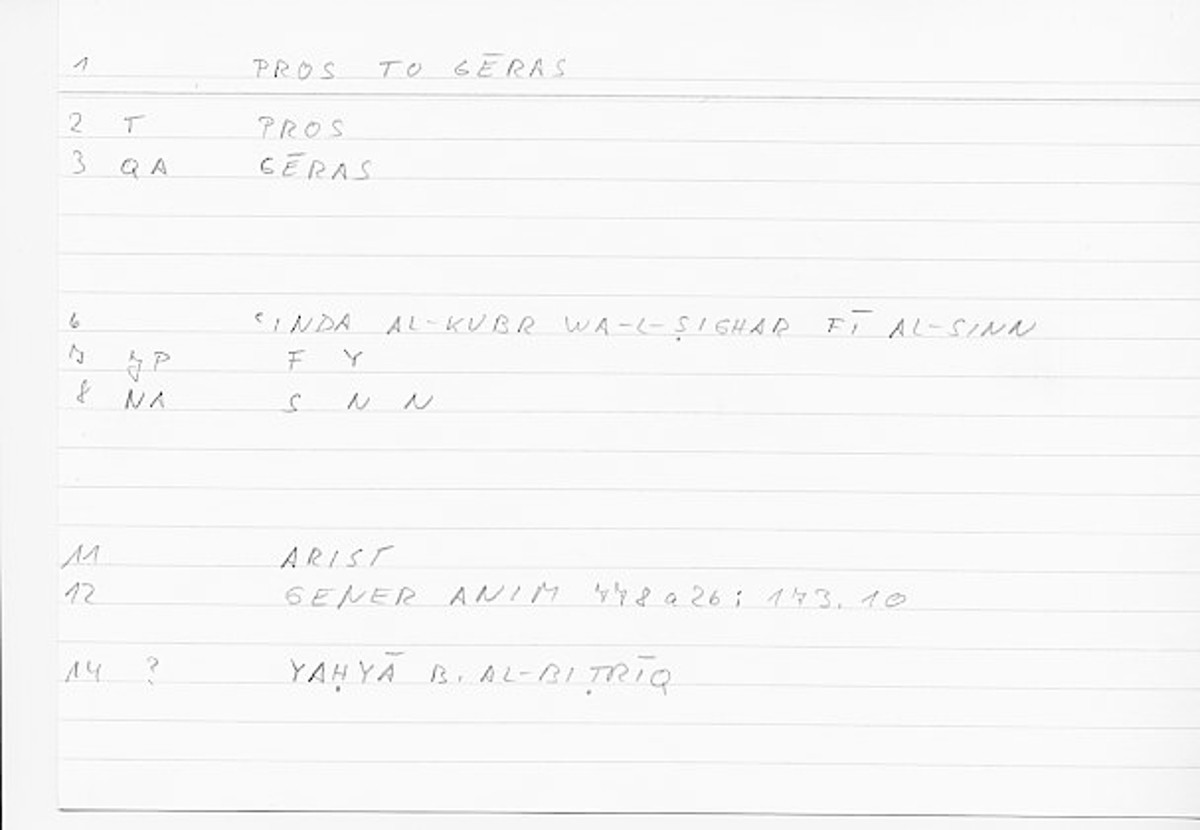 1 PROS TO GĒRAS
2 T PROS
3 QA GĒRAS
6 ʿINDA AL-KUBR WA-L-ṢIGHAR FĪ AL-SINN
7 P F Y
8 NA S N N
11 ARIST
12 GENER ANIM 778a26; 173.10
14 ? YAḤYĀ B. AL-BIṬRĪQ